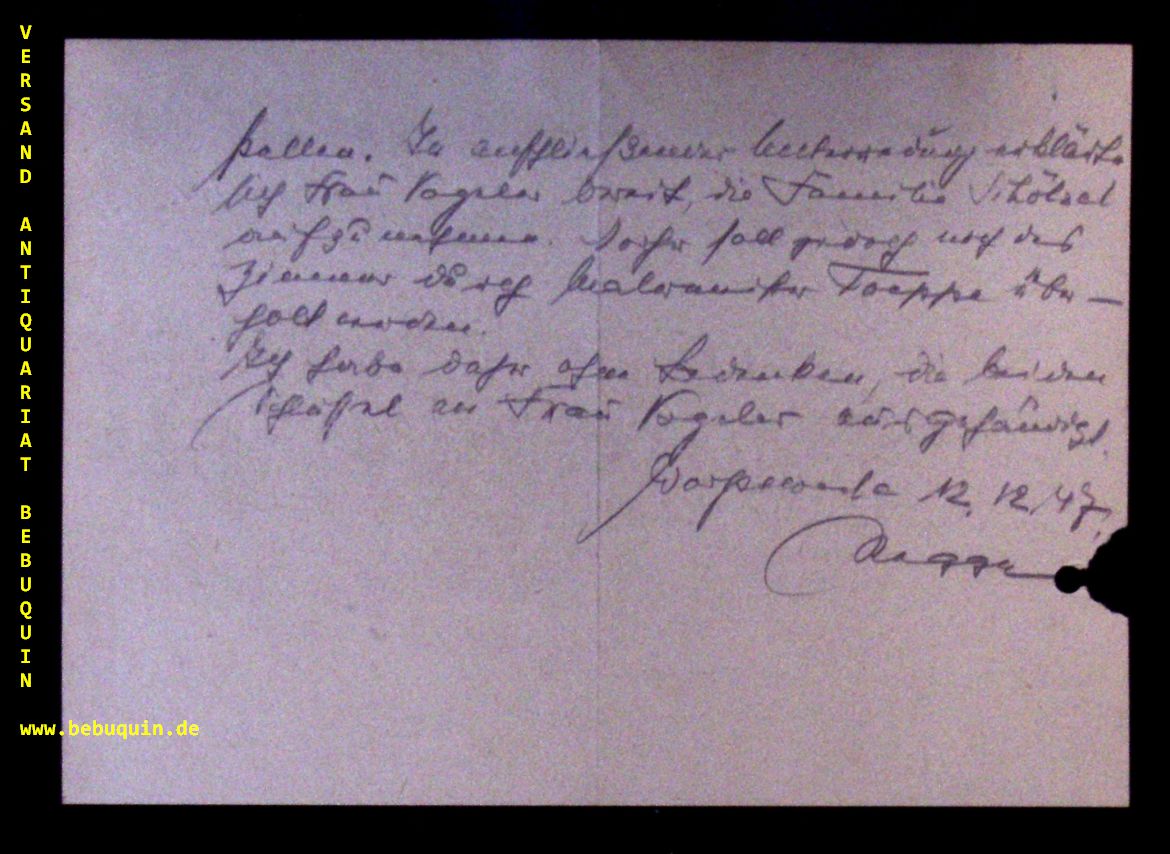 VERSAND ANTIQUARIAT BEBUQUIN
www.bebuquin.de
In anschließender Unterredung erklärte
sich Frau Vogeler bereit, die Familie Schölzel
aufzunehmen. Vorher soll jedoch noch das
Zimmer durch Malermeister Toeppe über-
holt werden.
Ich habe daher ohne Bedenken, die beiden
Schlüssel an Frau Vogeler ausgehändigt.
Worpswede 12.12.47.